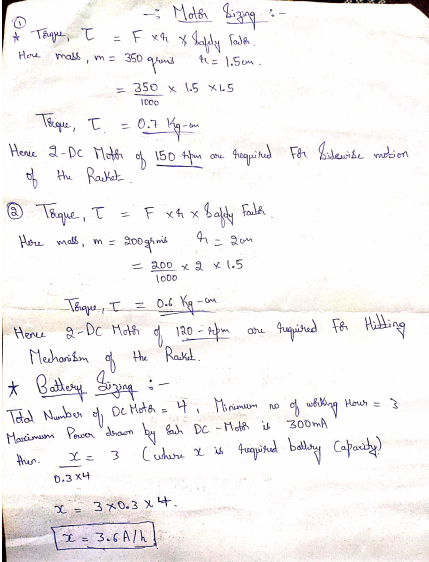 -: Motor Sizing :-
①
* Torque, τ = F × r × Safety Factor.
Here mass, m = 350 grms r = 1.5cm.
= 350/1000 × 1.5 × 1.5
Torque, τ = 0.7 Kg-cm
Hence 2-DC Motor of 150 rpm are required For Sidewise motion
of the Racket.
② Torque, τ = F × r × Safety Factor.
Here mass, m = 200grms r = 2cm
= 200/1000 × 2 × 1.5
Torque, τ = 0.6 Kg-cm
Hence 2-DC Motor of 120-rpm are required For Hitting
Mechanism of the Racket.
* Battery Sizing :-
Total Number of DC Motor = 4, Minimum no of working Hour = 3
Maximum Power drawn by Each DC-Motor is 300mA
then. x/0.3×4 = 3 (where x is required battery Capacity)
x = 3×0.3×4.
x = 3.6A/h.